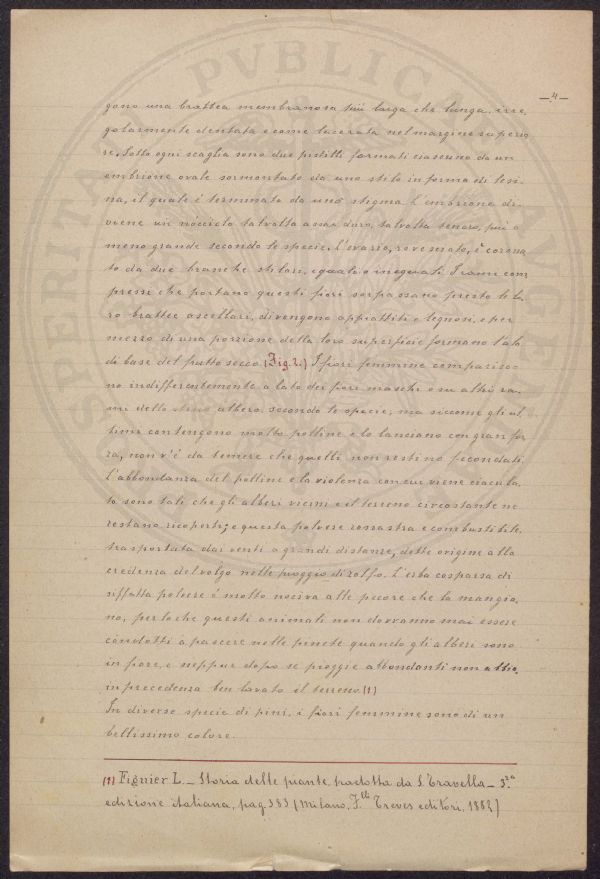 — 4 —
gono una brattea membranosa più larga che lunga, irre,
golarmente dentata e come lacerata nel margine superio
re. Sotto ogni scaglia sono due pistilli formati ciascuno da un
embrione ovale sormontato da uno stilo in forma di lesi-
na, il quale è terminato da uno stigma. L'embrione di-
viene un nòcciolo talvolta assai duro, talvolta tenero, più o
meno grande secondo le specie. L'ovario, rovesciato, è corona
to da due branche stilari, eguali o ineguali. I rami com
pressi che portano questi fiori sorpassano presto le lo,
ro brattee ascellari, divengono appiattiti e legnosi, e per
mezzo di una porzione della loro superficie formano l'ala
di base del frutto secco (Fig. 2.) I fiori femminei comparisco=
no indifferentemente a lato dei fiori maschi o su altri ra-
mi dello stesso albero, secondo le specie, ma siccome gli ul
timi contengono molto polline e lo lanciano con gran for
za, non v'è da temere che quelli non restino fecondati.
L'abbondanza del polline e la violenza con cui viene eiacula,
to sono tali che gli alberi vicini e il terreno circostante ne
restano ricoperti; e questa polvere rossastra e combustibile
trasportata dai venti a grandi distanze, dette origine alla
credenza del volgo nelle piogge di zolfo. L'erba cosparsa di
siffatta polvere è molto nociva alle pecore che la mangia,
no, perloche questi animali non dovranno mai essere
condotti a pascere nelle pinete quando gli alberi sono
in fiore, e neppur dopo se pioggie abbondanti non abbia,
in precedenza ben lavato il terreno (1)
In diverse specie di pini, i fiori femminei sono di un
bellissimo colore.
(1) Figuier L. _ Storia delle piante, tradotta da S. Travella _ 3.za
edizione italiana, pag. 383 (Milano, F.lli Treves editori, 1882)
PVBLIC